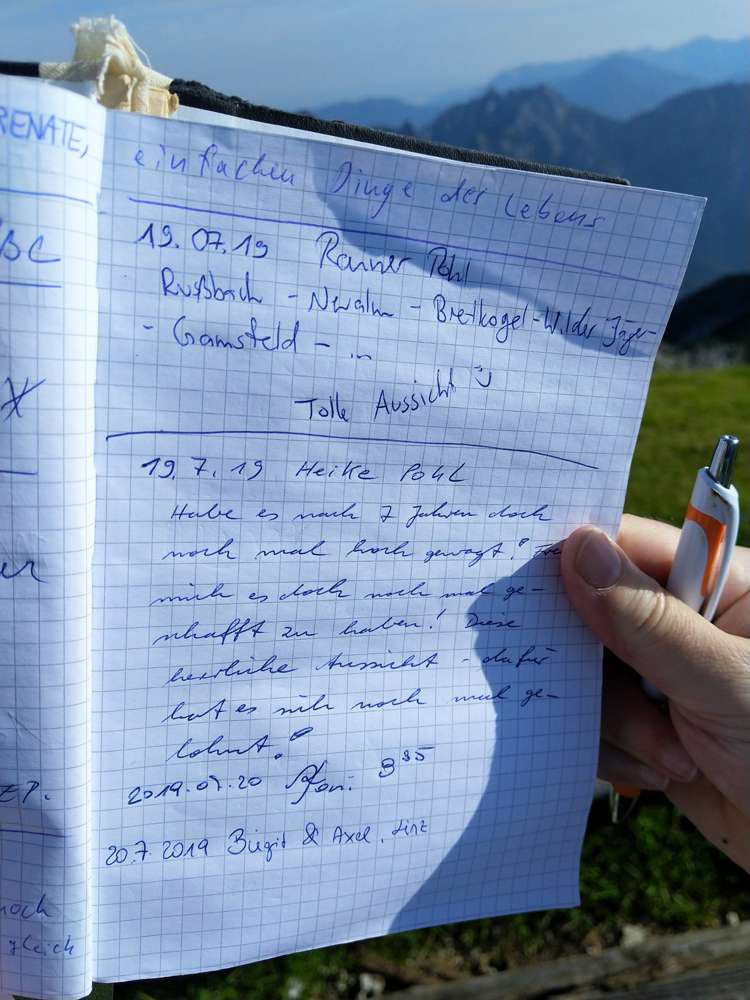 RENATE,
einfachen Dinge des Lebens
19.07.19 Rainer Pohl
Rußbach - Neualm - Bretkogel - Wilder Jäger
- Gamsfeld - ...
Tolle Aussicht
19.7.19 Heike Pohl
Habe es nach 7 Jahren doch
noch mal hoch gewagt!
mich es doch noch mal ge-
schafft zu haben! Diese
herrliche Aussicht - dafür
hat es sich noch mal ge-
lohnt!
2019.07.20 9³⁵
20.7.2019 Birgit & Axel, Linz
noch
gleich